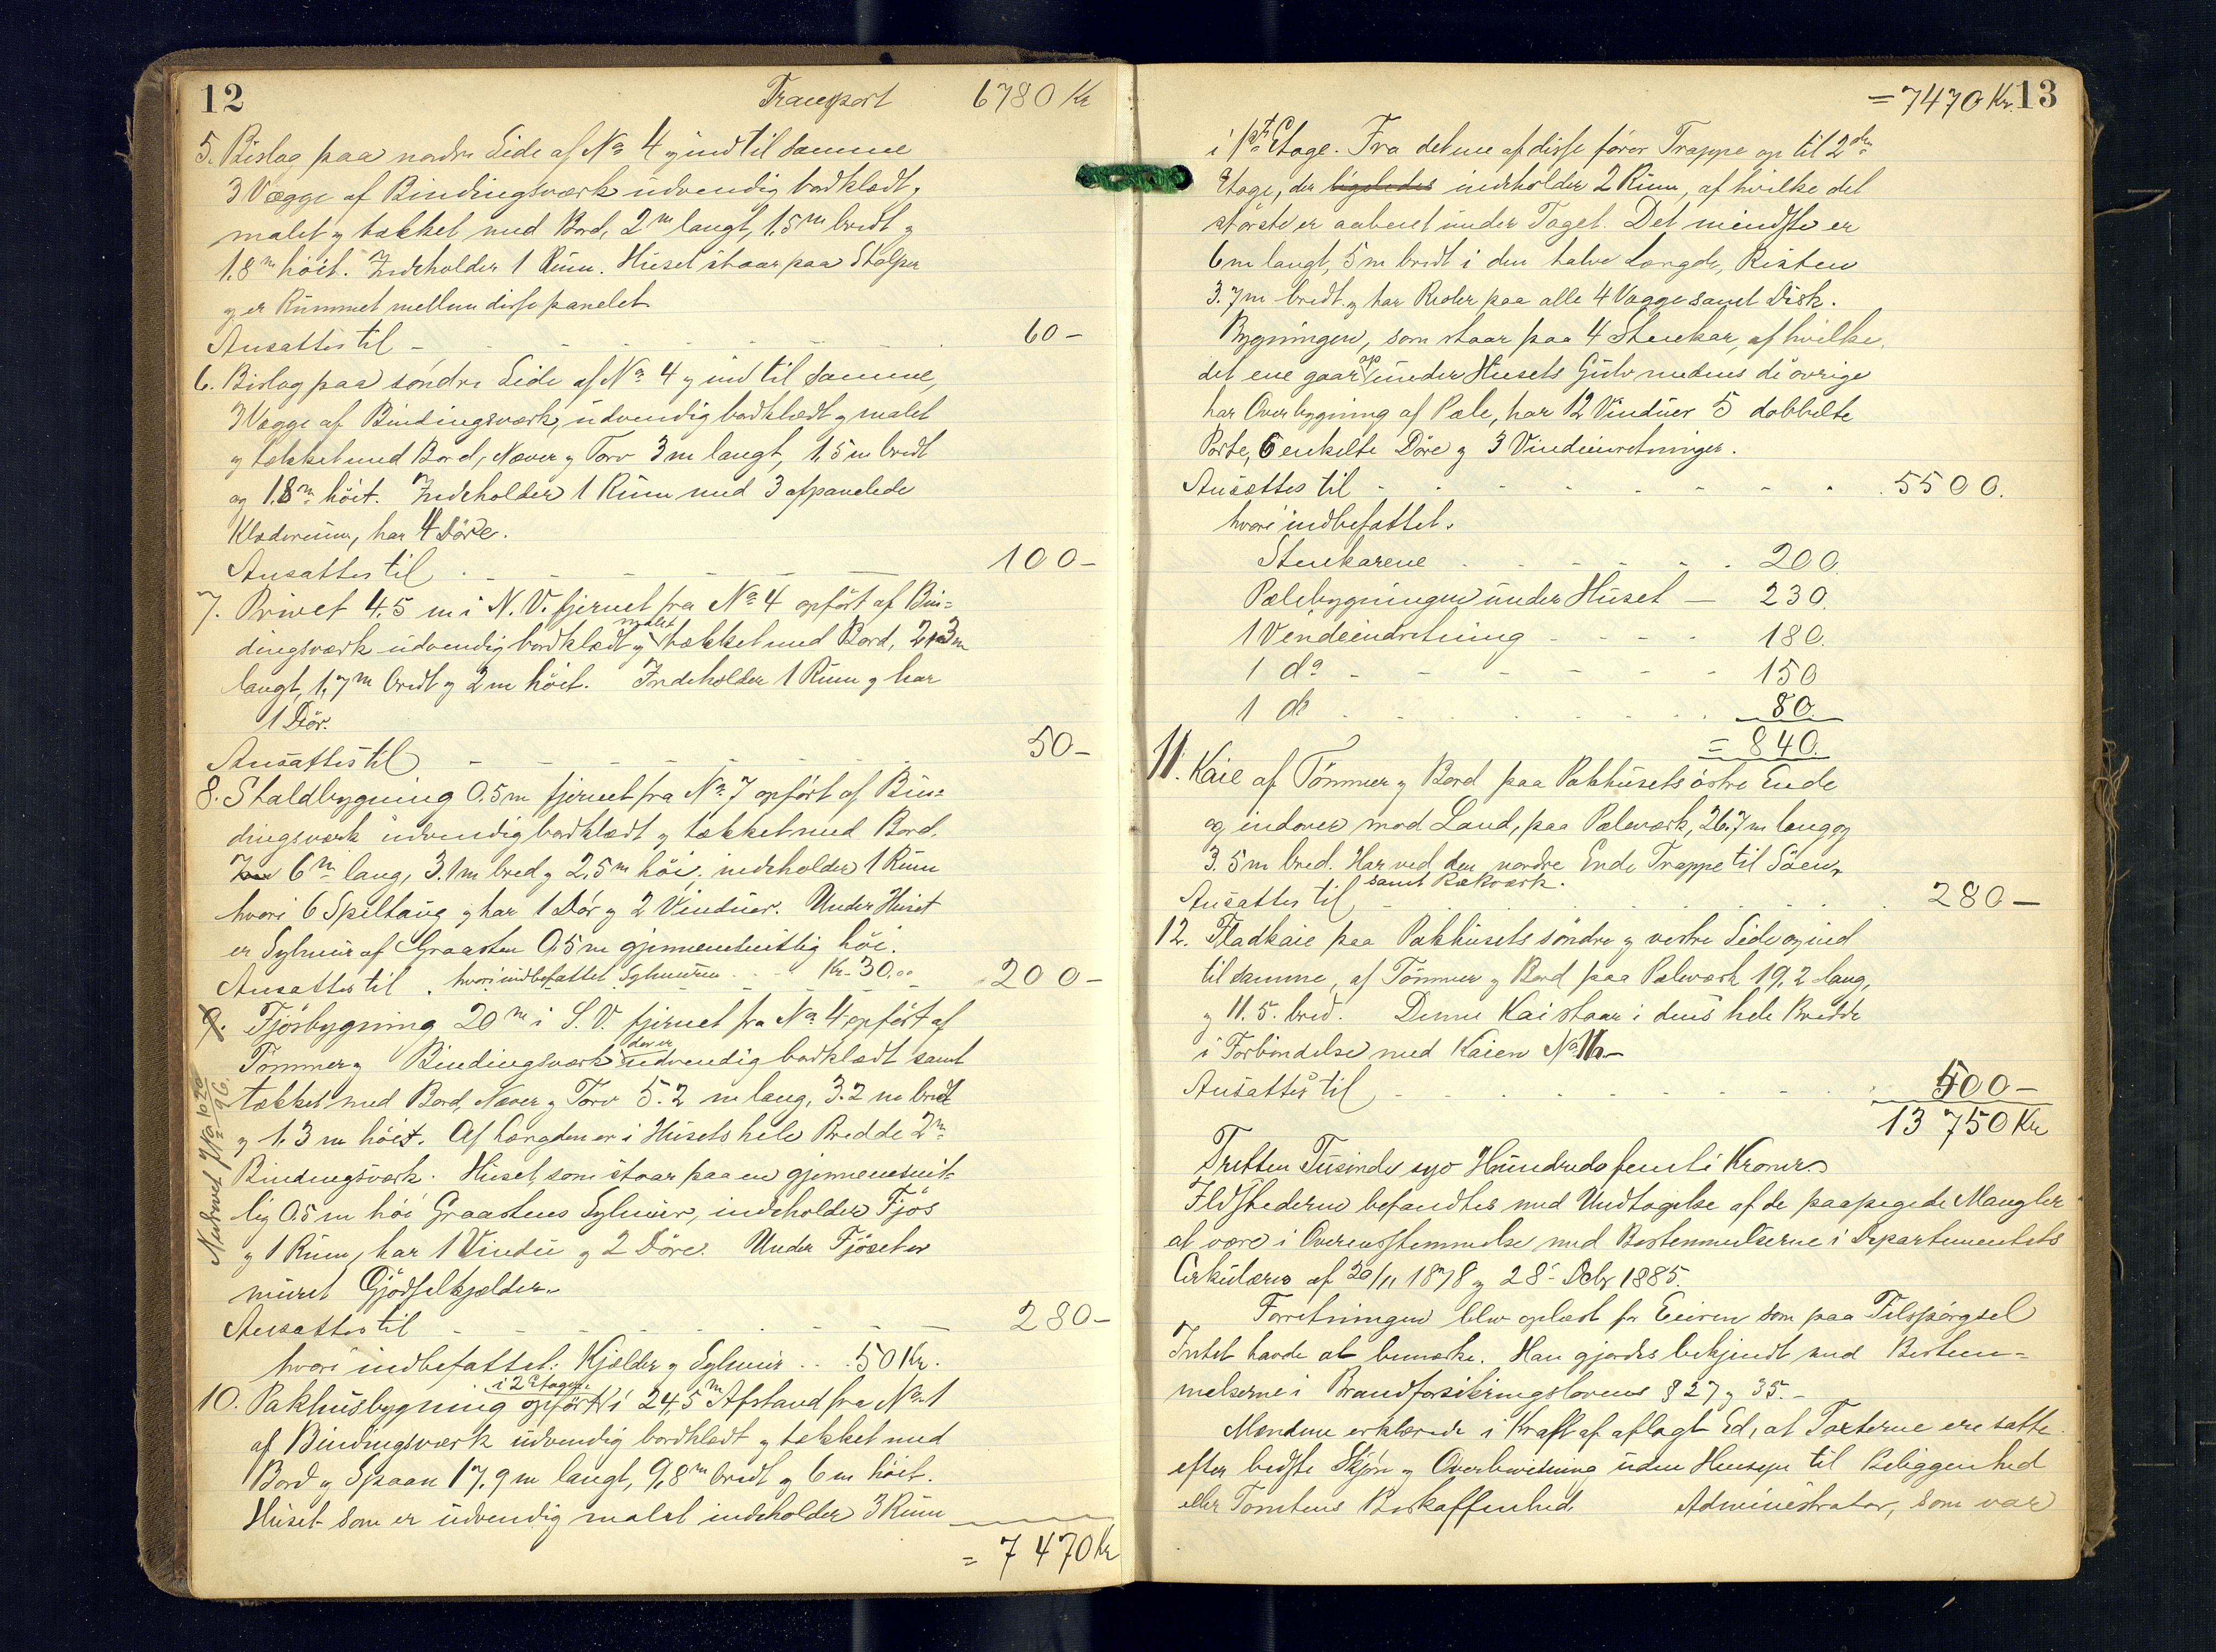 12 Transport 6780 Kr
5. Bislag paa nordre Side af No 4 og ind til samme
3 Vægge af Bindingsværk udvendig bordklædt,
malet og tækket med Bord, 2 m langt, 1,5 m bredt og
1,8 m høit. Indeholder 1 Rum. Huset staar paa Stolper
og er Rummet mellem disse panelet.
Ansættes til - 60-
6. Bislag paa søndre Side af No 4 og ind til samme,
3 Vægge af Bindingsværk, udvendig bordklædt og malet
og tækket med Bord, Næver og Torv 3 m langt, 1,5 m bredt
og 1,8 m høit. Indeholder 1 Rum med 3 afpanelede
Klæderum, har 4 Døre.
Ansættes til 100-
7. Privet 4,5 m i N. V. fjernet fra No 4 opført af Bin-
malet
dingsværk udvendig bordklædt og tækket med Bord, 2,3 m
langt, 1,7 m bredt og 2 m høit. Indeholder 1 Rum og har
1 Dør.
Ansættes til 50-
8. Staldbygning 0.5 m fjernet fra No 7 opført af Bin-
dingsværk udvendig bordklædt og tækket med Bord.
6 m lang, 3.1 m bred og 2,5 m høi, indeholder 1 Rum
hvori 6 Spiltaug og har 1 Dør og 2 Vinduer. Under Huset
er Sylmur af Graasten 0,5 m gjennemsnitlig høi.
Ansættes til, hvori indbefattet Sylmuren Kr. 30,00 200-
9. Fjøsbygning 20 m i S. V. fjernet fra No 4 opført af
der er
Tømmer og Bindingsværk udvendig bordklædt samt
tækket med Bord, Næver og Torv 5.2 m lang, 3.2 m bredt
og 1.3 m høit. Af Længden er i Husets hele Bredde 2 m
Bindingsværk. Huset, som staar paa en gjennemsnit-
lig 0,5 m høi Graastens Sylmur, indeholder Fjøs
og 1 Rum, har 1 Vindu og 2 Døre. Under Fjøset er
muret Gjødselkjælder.
Ansættes til 280-
hvori indbefattet: Kjælder og Sylmur . . . 50 Kr.
i 2 Etager
10. Pakhusbygning opført i 24,5 m Afstand fra No 1
af Bindingsværk udvendig bordklædt og tækket med
Bord og Spaan 17,9 m langt, 9,8 m bredt og 6 m høit.
Huset som er udvendig malet indeholder 3 Rum
= 7470 Kr
= 7470 Kr. 13
i 1ste Etage. Fra det ene af disse fører Trappe op til 2den
Etage, der ligeledes indeholder 2 Rum, af hvilke det
største er aabent under Taget. Det mindste er
6 m langt, 5 m bredt i den halve Længde, Resten
3.7 m bredt og har Reoler paa alle 4 Vægge samt Disk.
Bygningen, som staar paa 4 Stenkar, af hvilke
op
det ene gaar under Husets Gulv medens de øvrige
har Overbygning af Pæle, har 12 Vinduer 5 dobbelte
Porte, 6 enkelte Døre og 3 Vindeindretninger.
Ansættes til 5500.
hvori indbefattet.
Stenkarene 200.
Pælebygningen under Huset - 230.
1 Vindeindretning 180.
1 do 150
1 do 80.
= 840.
11. Kaie af Tømmer og Bord paa Pakhusets østre Ende
og indover mod Land, paa Pæleværk, 26,7 m lang og
3.5 m bred. Har ved den nordre Ende Trappe til Søen,
samt Rækværk.
Ansættes til 280-
12. Fladkaie paa Pakhusets søndre og vestre Side og ind
til samme, af Tømmer og Bord paa Pæleværk 19,2 lang,
og 11.5. bred. Denne Kai staar i dens hele Bredde
i Forbindelse med Kaien No 11.-
Ansættes til 500-
13 750 Kr
Tretten Tusinde syv Hundrede femti Kroner.
Ildstederne befandtes med Undtagelse af de paapegede Mangler
at være i Overensstemmelse med Bestemmelserne i Departementets
Cirkulærer af 20/11 1878 og 28 Debr 1885.
Forretningen blev oplæst for Eieren som paa Tilspørgsel
Intet havde at bemærke. Han gjordes bekjendt med Bestem-
melserne i Brandforsikringslovens § 27 og 35.-
Mændene erklærede i Kraft af aflagt Ed, at Taxterne ere satte
efter bedste Skjøn og Overbevisning uden Hensyn til Beliggenhed
eller Tomtens Beskaffenhed. Administrator, som var